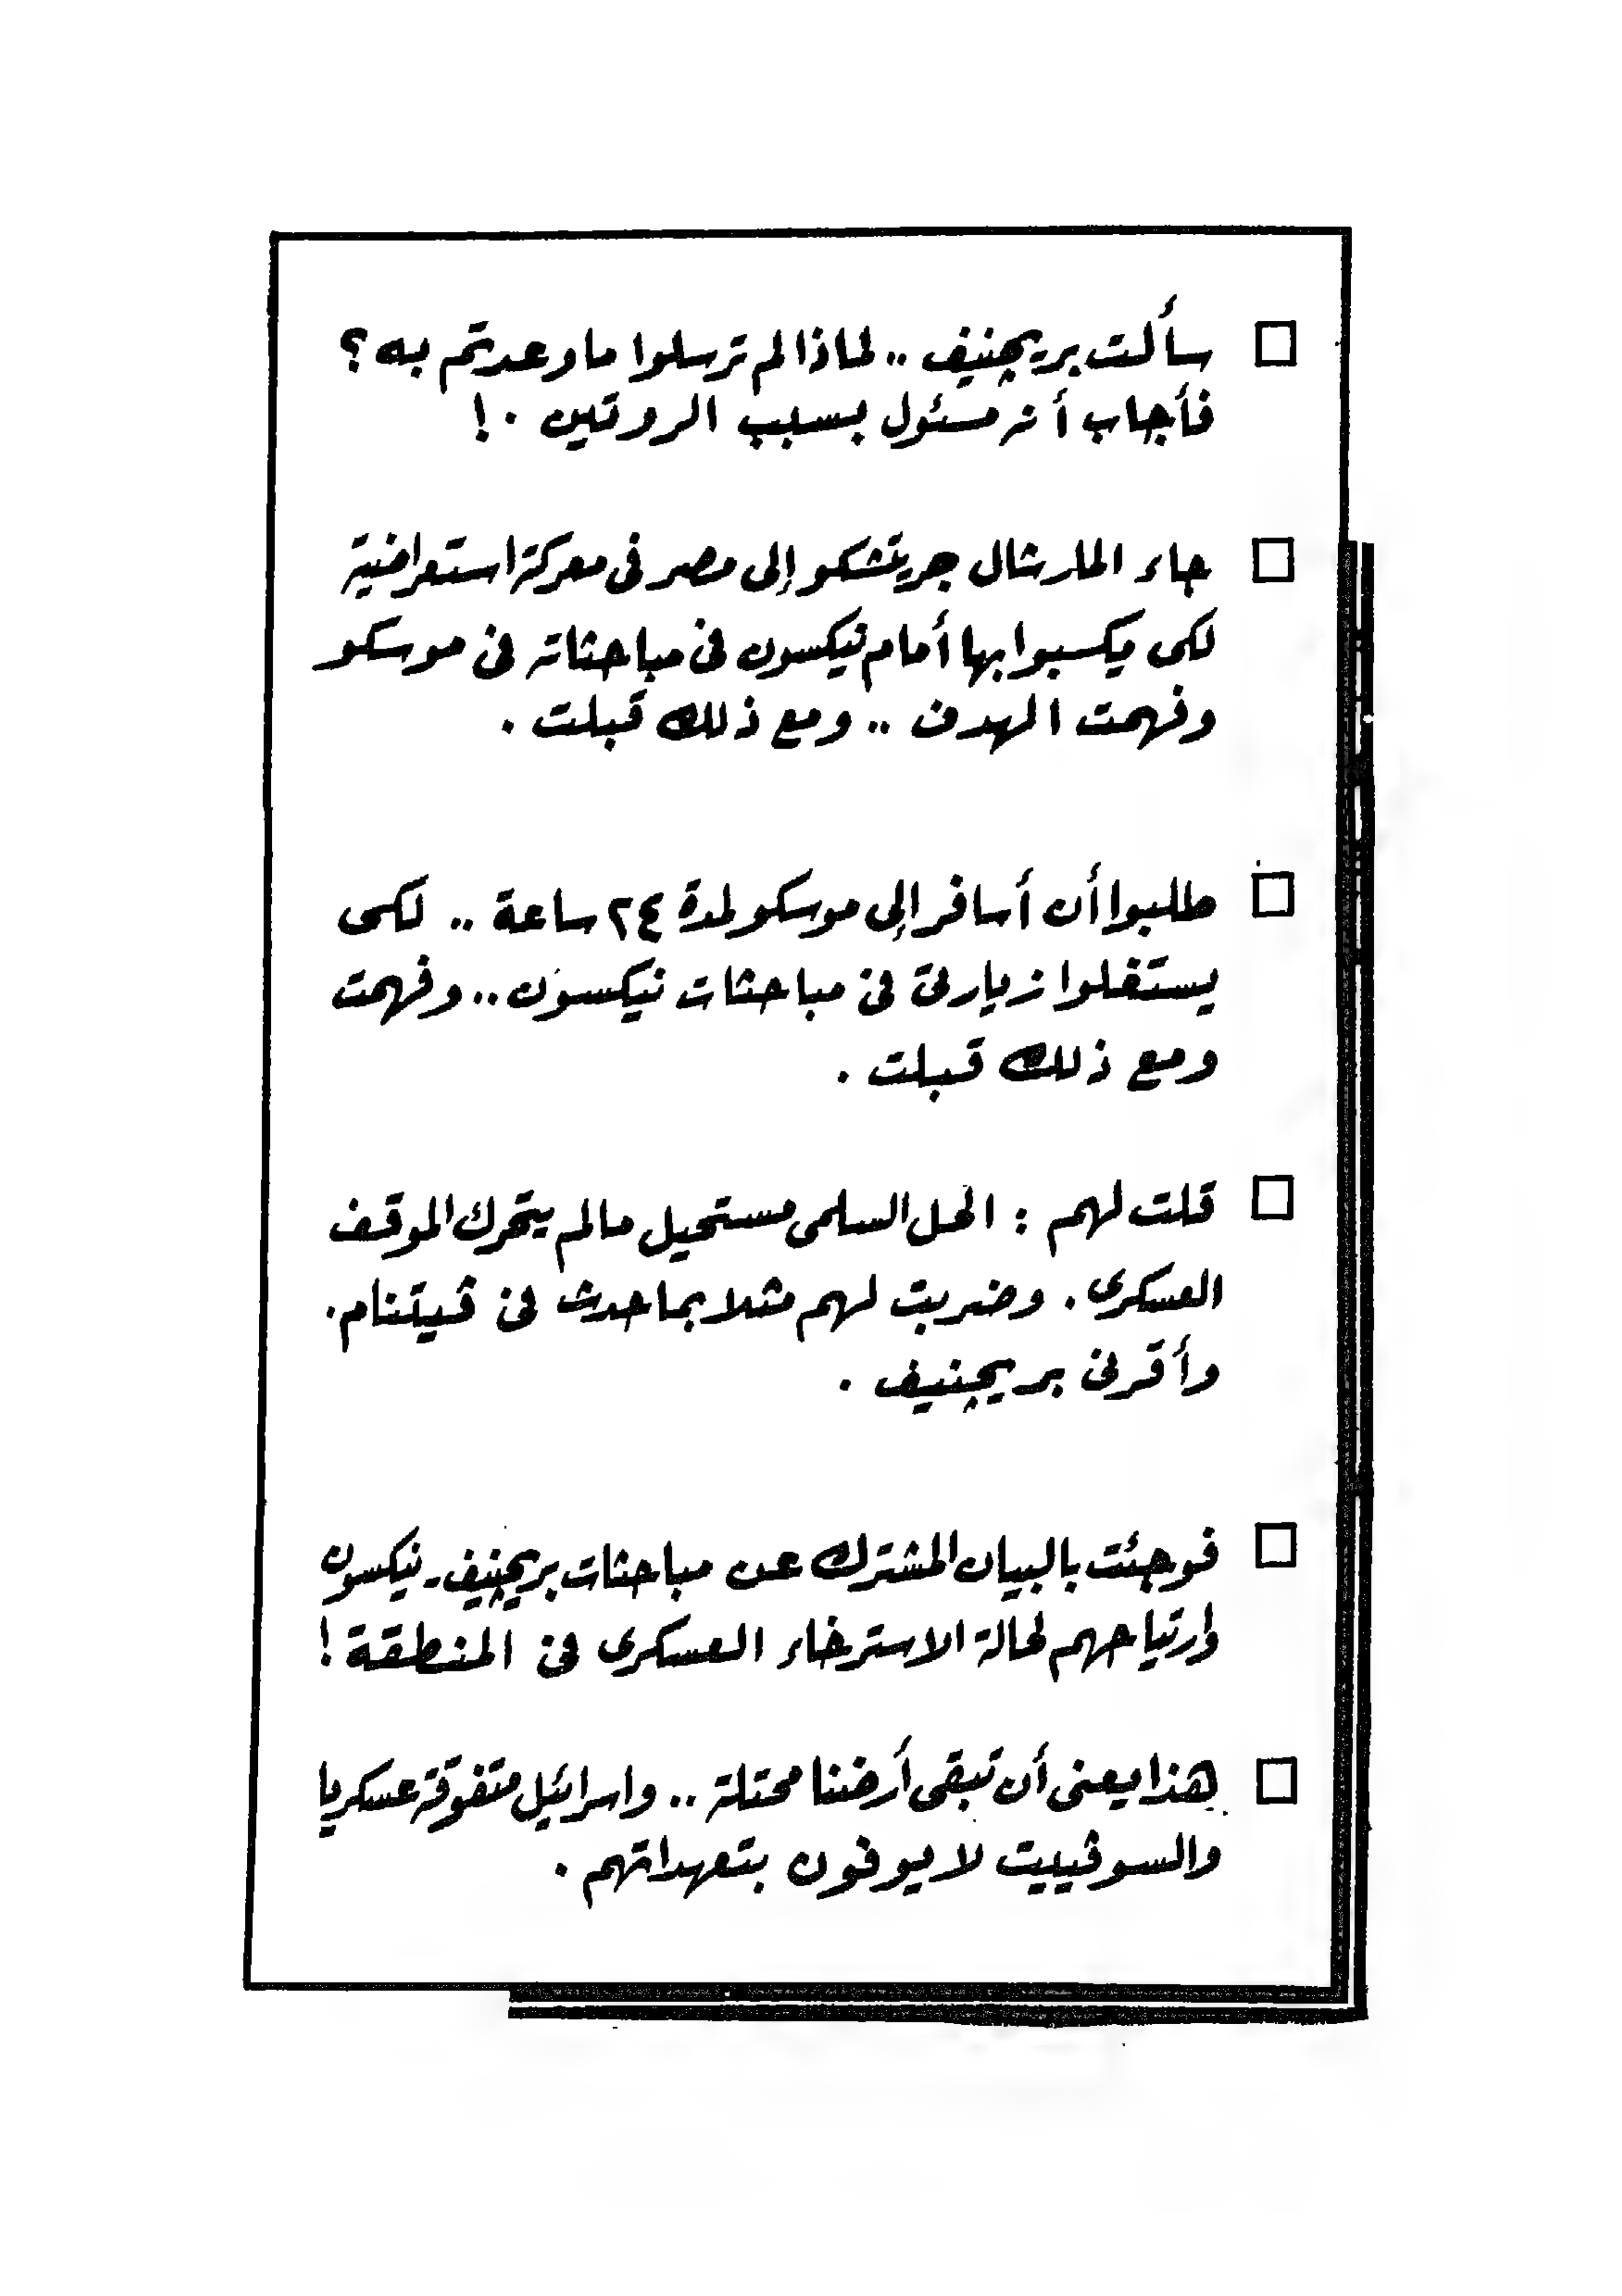 سألت بريچنيف .. لماذا لم ترسلوا ما وعدتم به ؟
فأجاب أنه مسئول بسبب الروتين . !
جاء المارشال جريتشكو إلى مصر فى معركة استعراضية
لكى يكسبوا بها أمام نيكسون فى مباحثاته فى موسكو
وفهمت الهدف .. ومع ذلك قبلت .
طلبوا أن أسافر إلى موسكو لمدة ٢٤ ساعة .. لكى
يستغلوا زيارتى فى مباحثات نيكسون .. وفهمت
ومع ذلك قبلت .
قلت لهم : الحل السلمى مستحيل مالم يتحرك الموقف
العسكرى . وضربت لهم مثلا بما حدث فى ڤيتنام .
وأقرنى بريچنيف .
فوجئت بالبيان المشترك عن مباحثات بريچنيف - نيكسون
وارتياحهم لحالة الاسترخاء العسكرى فى المنطقة !
هذا يعنى أن تبقى أرضنا محتلة .. واسرائيل متفوقة عسكريا
والسوڤييت لا يوفون بتعهداتهم .